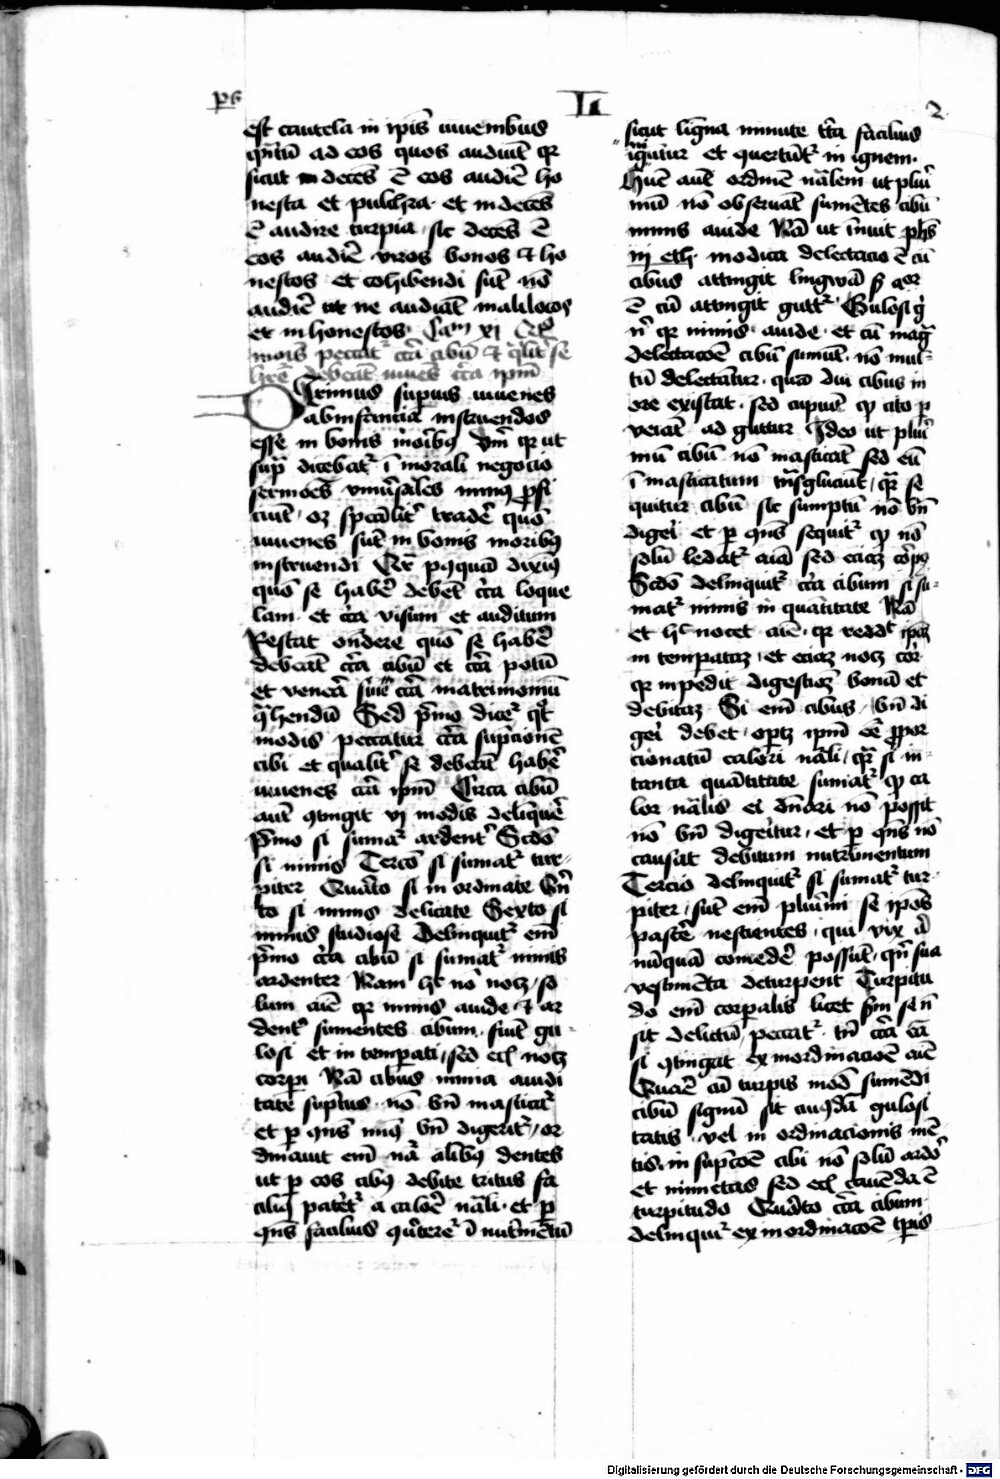 ps L 2
est cautela in ipis iuuenibus
qntū ad eos quos audiūt qr
sicut in decēs ē eos audiē ho
nesta et pulchra et indecēs
ē audire turpia sic decēs ē
eos audiē viros bonos et ho
nestos et cohibendi sūt nō
audiē ut ne audiāt maliloqos
et in honestos Cam xi Qt
modis peccat cca cibū et qlit se
hrē debeāt iuues cca ipm
Primus supius iuuenes
ab infantia instruendos
esse in bonis moribus Vm qr ut
supra dicebat ī morali negocio
sermōes vniusales minus profi
ciūt oz spēalit tradē quō
iuuenes sūt in bonis moribus
instruendi Et pqquā diximus
quō se habē debēt cca loque
lam et cca visum et auditum
Restat ondere quō se habē
debeāt cca cibū et cca potū
et venerā siue cca matrimoniū
qhendū Sed pmo dicet qt
modis peccatur cca supcionē
cibi et qualit se debeāt habē
iuuenes cca ipm Circa cibū
aut qtingit vi modis delinquē
pmo si sumat ardent Scdō
si nimis Tercō si sumat tur-
piter Quarto si in ordinate Qn
to si nimis delicate Sexto si
nimis studiose Delinquit em
pmo cca cibū si sumat nimis
ardenter Nam hc nō noc so
lum aie qr nimis auide et ar
dent sumentes cibum sūt gu-
losi et in temperati sed ecl noc
corpi Nā cibus nimia auidi
tate suptus nō bn masticat
et p qns minus bn digerit or
dinauit em nā alibus dentes
ut p eos cibus debite tritus fa
cilius patet a calore nāli et p
qns facilius qūtere ī nutimētū
sicut ligna minute tca facilius
igniūtur et quertūt in ignem
Hunc aut ordinē nālem ut plur
mū nō obseruāt sumētes cibū
nimis auide Nā ut innuit phs
iij eth modica delectacio ē cū
cibus attingit linguā sz aor
ē cū attingit gutt Gulosi g
n qr nimis auide et cū mag
delectacōe cibū sumūt nō mul-
tū delectātur quādiu cibus in
ore existat sed cupiūt qr cito p
veiat ad guttur Ideo ut plur
mū cibū nō masticāt sed eū
ī masticatum tnsglucīut qr se
quitur cibū sic sumptū nō bn
digei et p qns sequit qr nō
solū ledat aiā sed eciaz corpus
Scdō delinquit cca cibum si su-
mat nimis in quātitate Nā
et hc nocet aie qr reddt ipas
in temperatas et eciaz noc cor
qr impedit digestioz bonā et
debitaz Si em cibus bn di
geri debet opz ipm ee ppor
cionatū calori nāli qr si in
tanta quātitate sumat qr ca
lor nālis ei dnari nō possit
nō bn digeitur et p qns nō
causat debitum nutrimentum
Tercio delinquit si sumat tur
piter sūt em plurimi se ipos
pascē nescientes qui vix aut
nūquā comedē possūt qn sua
vestimēta deturpent Turpitu
do em corpalis licet pm se n
sit delictū peccat tn cca eā
si qtingat ex inordinacōe aie
Quare cū turpis mod sumēdi
cibū signū sit cuiusdā gulosi
tatis vel in ordinacionis mē
tis in supcōe cibi nō solū ardor
et nimietas sed ecl cauēda ē
turpitudo Quarto cca cibum
delinquit ex inordinacōe tpis
Digitalisierung gefördert durch die Deutsche Forschungsgemeinschaft - DFG